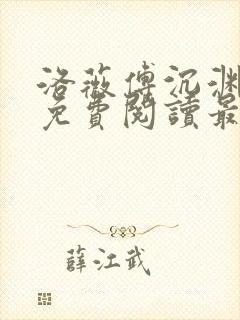 洛薇傅沉渊
免費閱讀最
薛江武